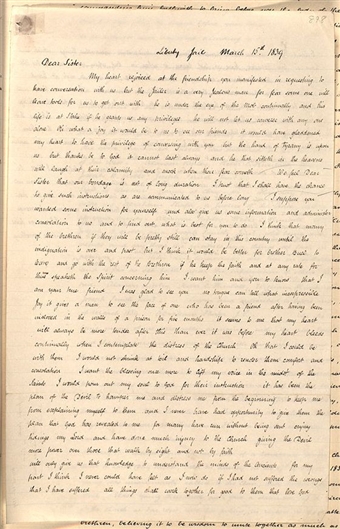 Liberty Jail March 15th 1839
Dear Sister
My heart rejoiced at the friendship you manifested in requesting to
have conversation with us but the Jailer is a very jealous man for fear some one will
leave tools for us to get out with he is under the eye of the Mob continually and his
life is at Stake if he grants us any privileges he will not let us converse with any one
alone Oh what a joy it would be to us to see our friends it would have gladdened
my heart to have the privilege of conversing with you but the hand of tyrany is upon
us but thanks be to God it cannot last always and he that sitteth in the heavens
will laugh at their calamity and mock when their fear cometh We feel Dear
Sister that our bondage is not of long duration I trust that I shall have the chance
to give such instructions as are communicated to us before long I suppose you
wanted some instruction for yourself and also give us some information and administer
consolation to us and to find out what is best for you to do I think that many
of the brethren if they will be pretty still can stay in this country until the
indignation is over and past but I think it would be better for brother to
leave and go with the rest of the brethren if he keeps the faith and at any rate for
thus speaketh the Spirit concerning him I want him and you to know that I
am your true friend I was glad to see you no tongue can tell what inexpressible
Joy it gives a man to see the face of one who has been a friend after having been
inclosed in the walls of a prison for five months it seems to me that my heart
will always be more tender after this than ever it was before my heart bleeds
continually when I contemplate the distress of the Church Oh that I could be
with them I would not shrink at toil and hardship to render them comfort and
consolation I want the blessing once more to lift my voice in the midst of the
Saints I would pour out my soul to God for their instruction it has been the
plan of the Devil to hamper me and distress me from the beginning to keep me
from explaining myself to them and I never have had opportunity to give them the
plan that God has revealed to me for many have run without being sent crying
tidings my Lord and have done much injury to the Church giving the Devil
more power over those that walk by sight and not by faith
will only give us that knowledge to understand the minds of the Ancients for my
part I think I never could have felt as I now do if I had not suffered the wrongs
that I have suffered all things shall work together for good to them that love God
brethren, believing it to be wisdom to unite together as much as